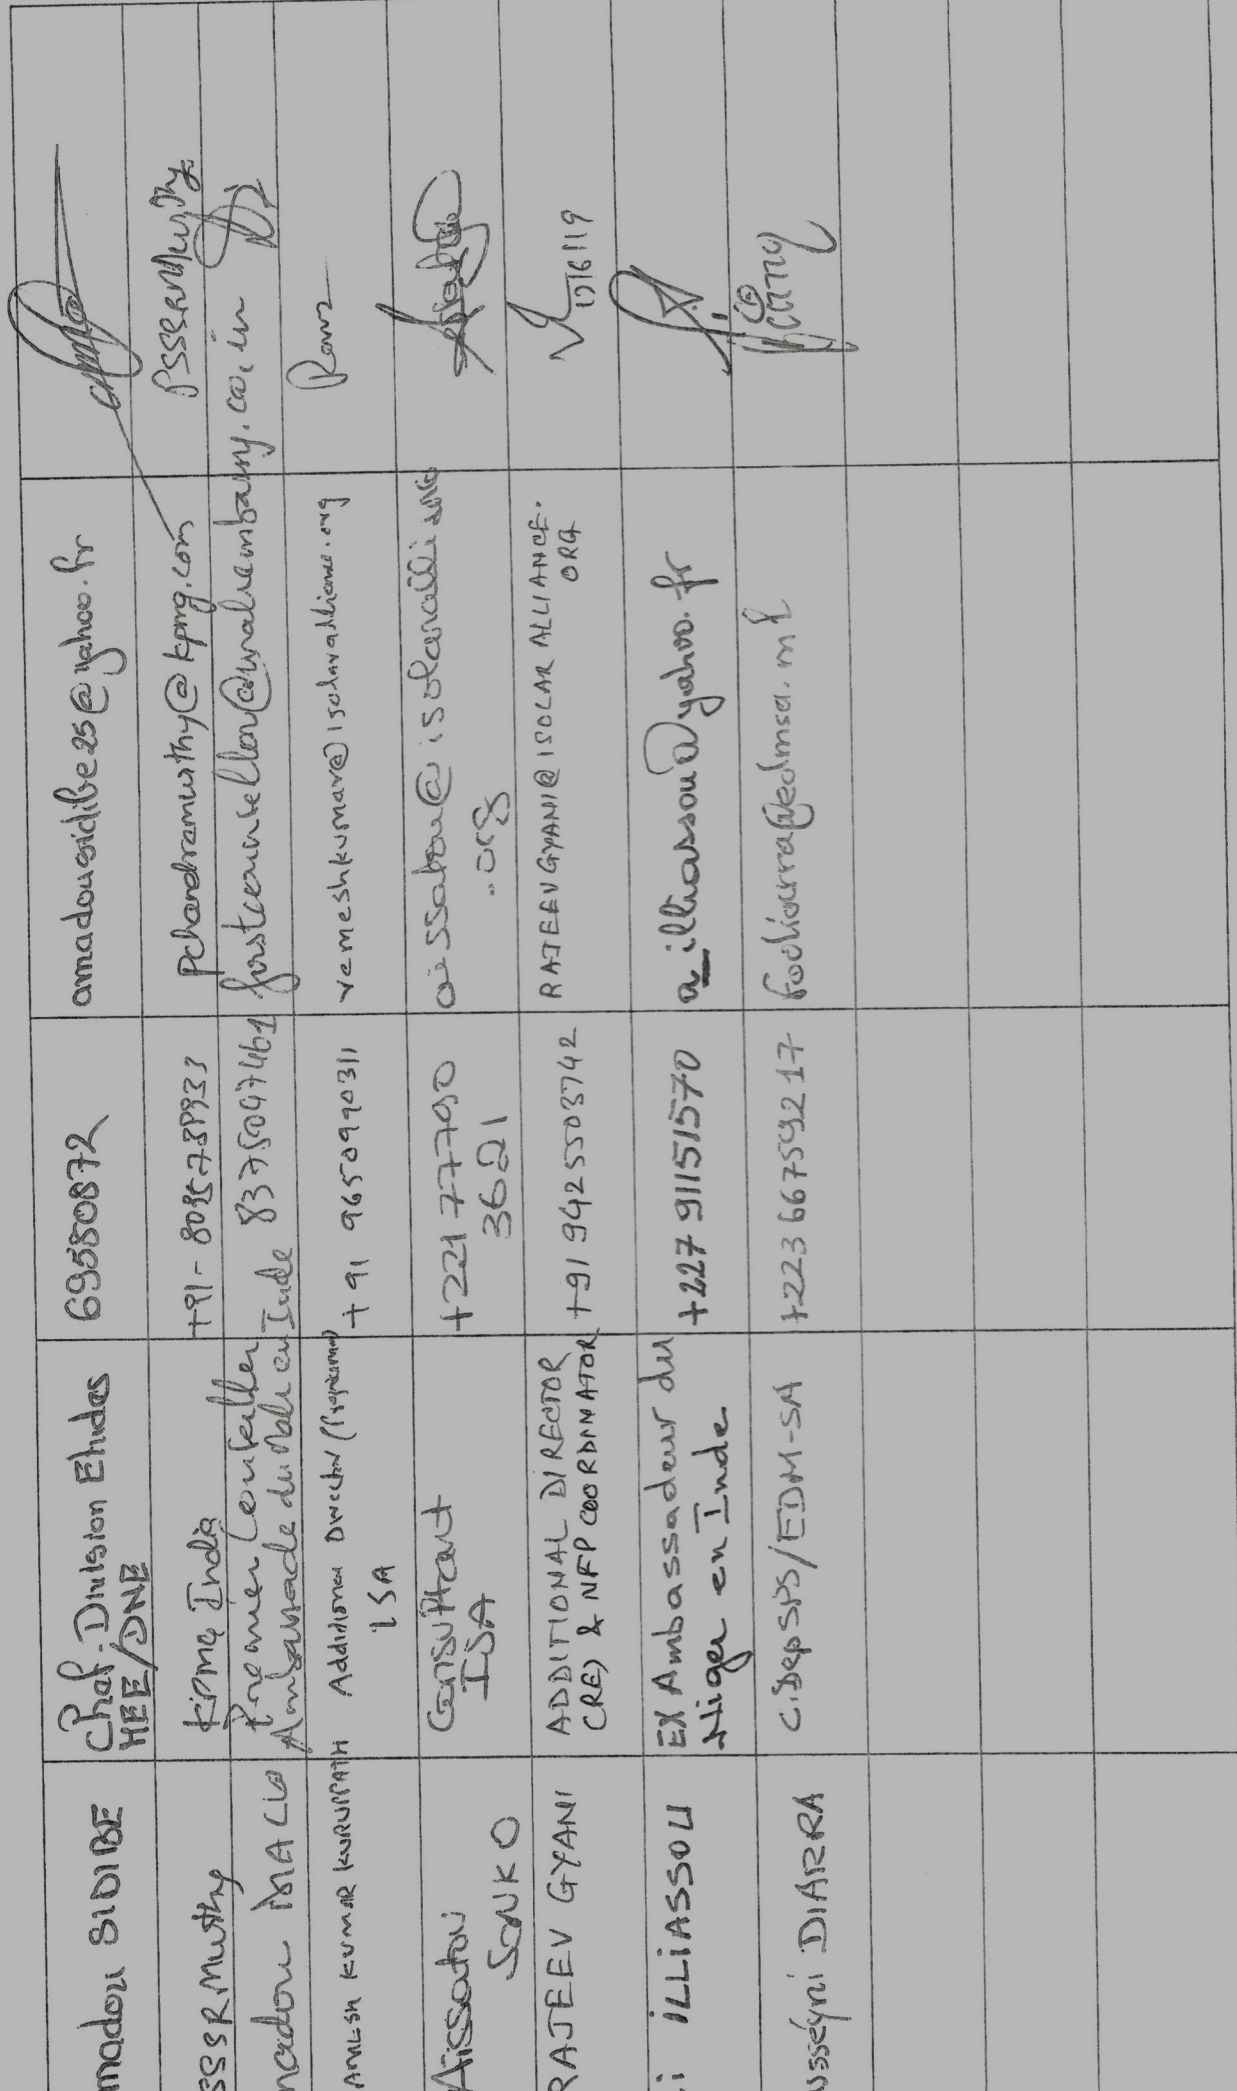 madou SIDIBE
Chef. Division Etudes
MEE/DNE
69580872
amadousidibe25@yahoo.fr
SSSRMurthy
KPMG India
pchandramurthy@kpmg.com
PSSSRMurthy
madou MACLO
Premier Conseiller
Ambassade du Mali en Inde
8375047461
AMESH KUMAR KURUPPATH
Additional Director (Programme)
ISA
+91 9650990311
rameshkumar@isolaralliance.org
Ram
Aissatou
SONKO
Consultant
ISA
+221 77790
3621
aissatou@isolaralliance
.org
RAJEEV GYANI
ADDITIONAL DIRECTOR
CRE) & NFP COORDINATOR
+91 9425503742
RAJEEVGYANI@ISOLARALLIANCE.
ORG
i ILLIASSOU
EX Ambassadeur du
Niger en Inde
+227 91151570
a_illiassou@yahoo.fr
usseyni DIARRA
C.Dep SPS/EDM-SA
+223 66759217
fodiarra@edmsa.ml